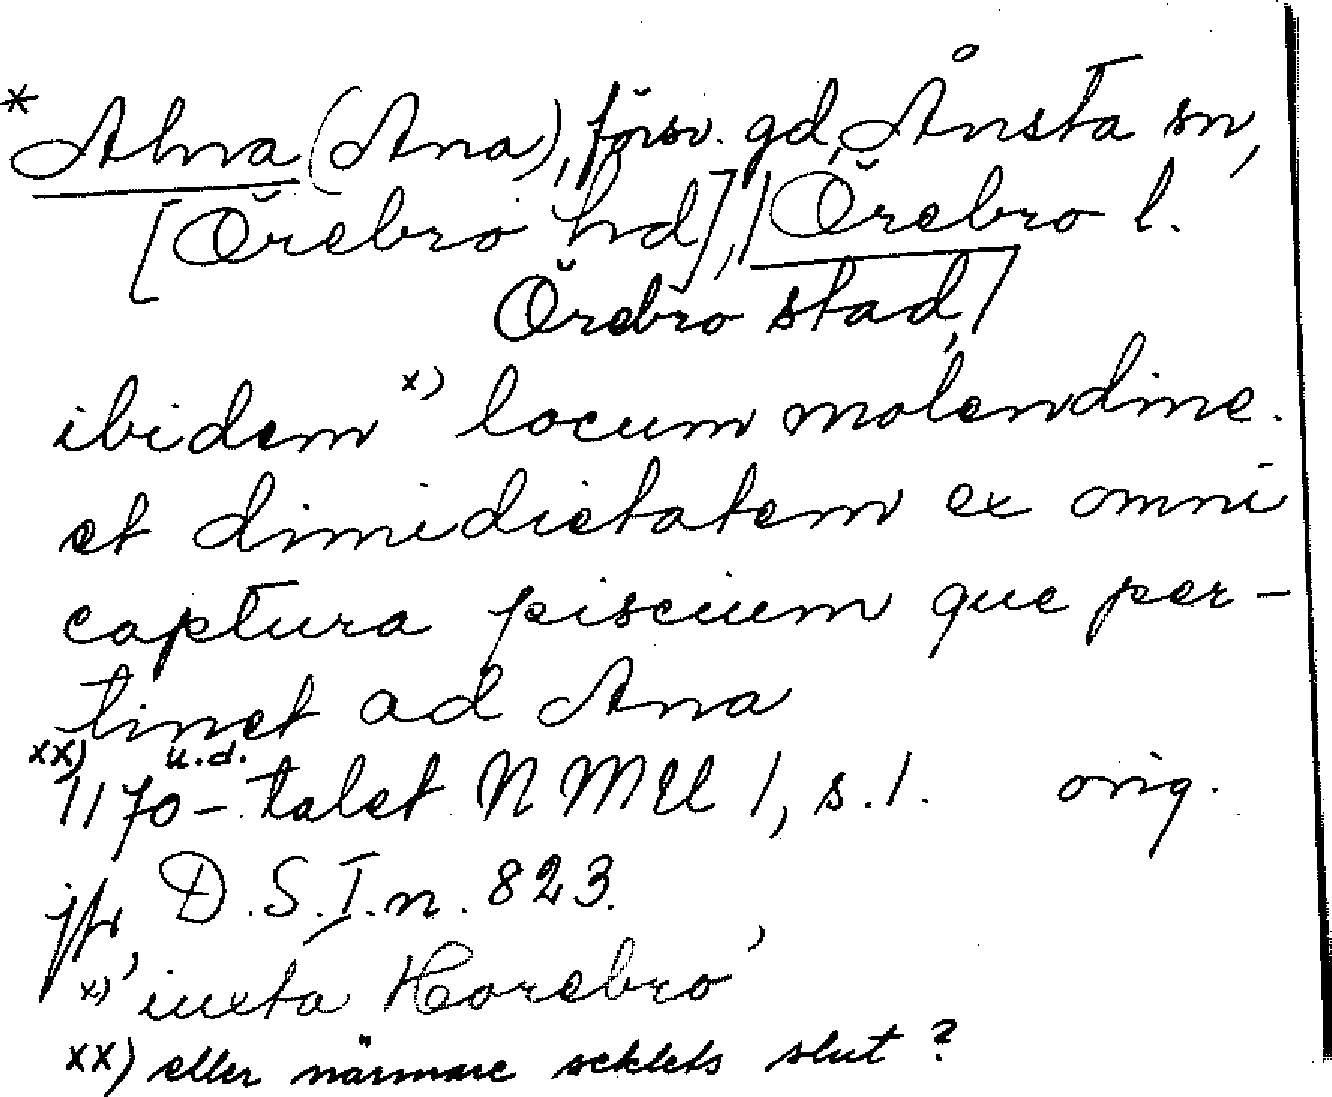 * Alna (Ana), försv. gd, Ånsta sn,
[Örebro hd], / Örebro l.
Örebro stad, /
ibidem x) locum molendine.
et dimidietatem ex omni
captura piscium que per-
tinet ad Ana
xx) 1170-talet u.d. NMU 1, s. 1. orig.
jfr D.S. I. n. 823.
x) 'iuxta Horebro'
xx) eller närmare seklets slut?